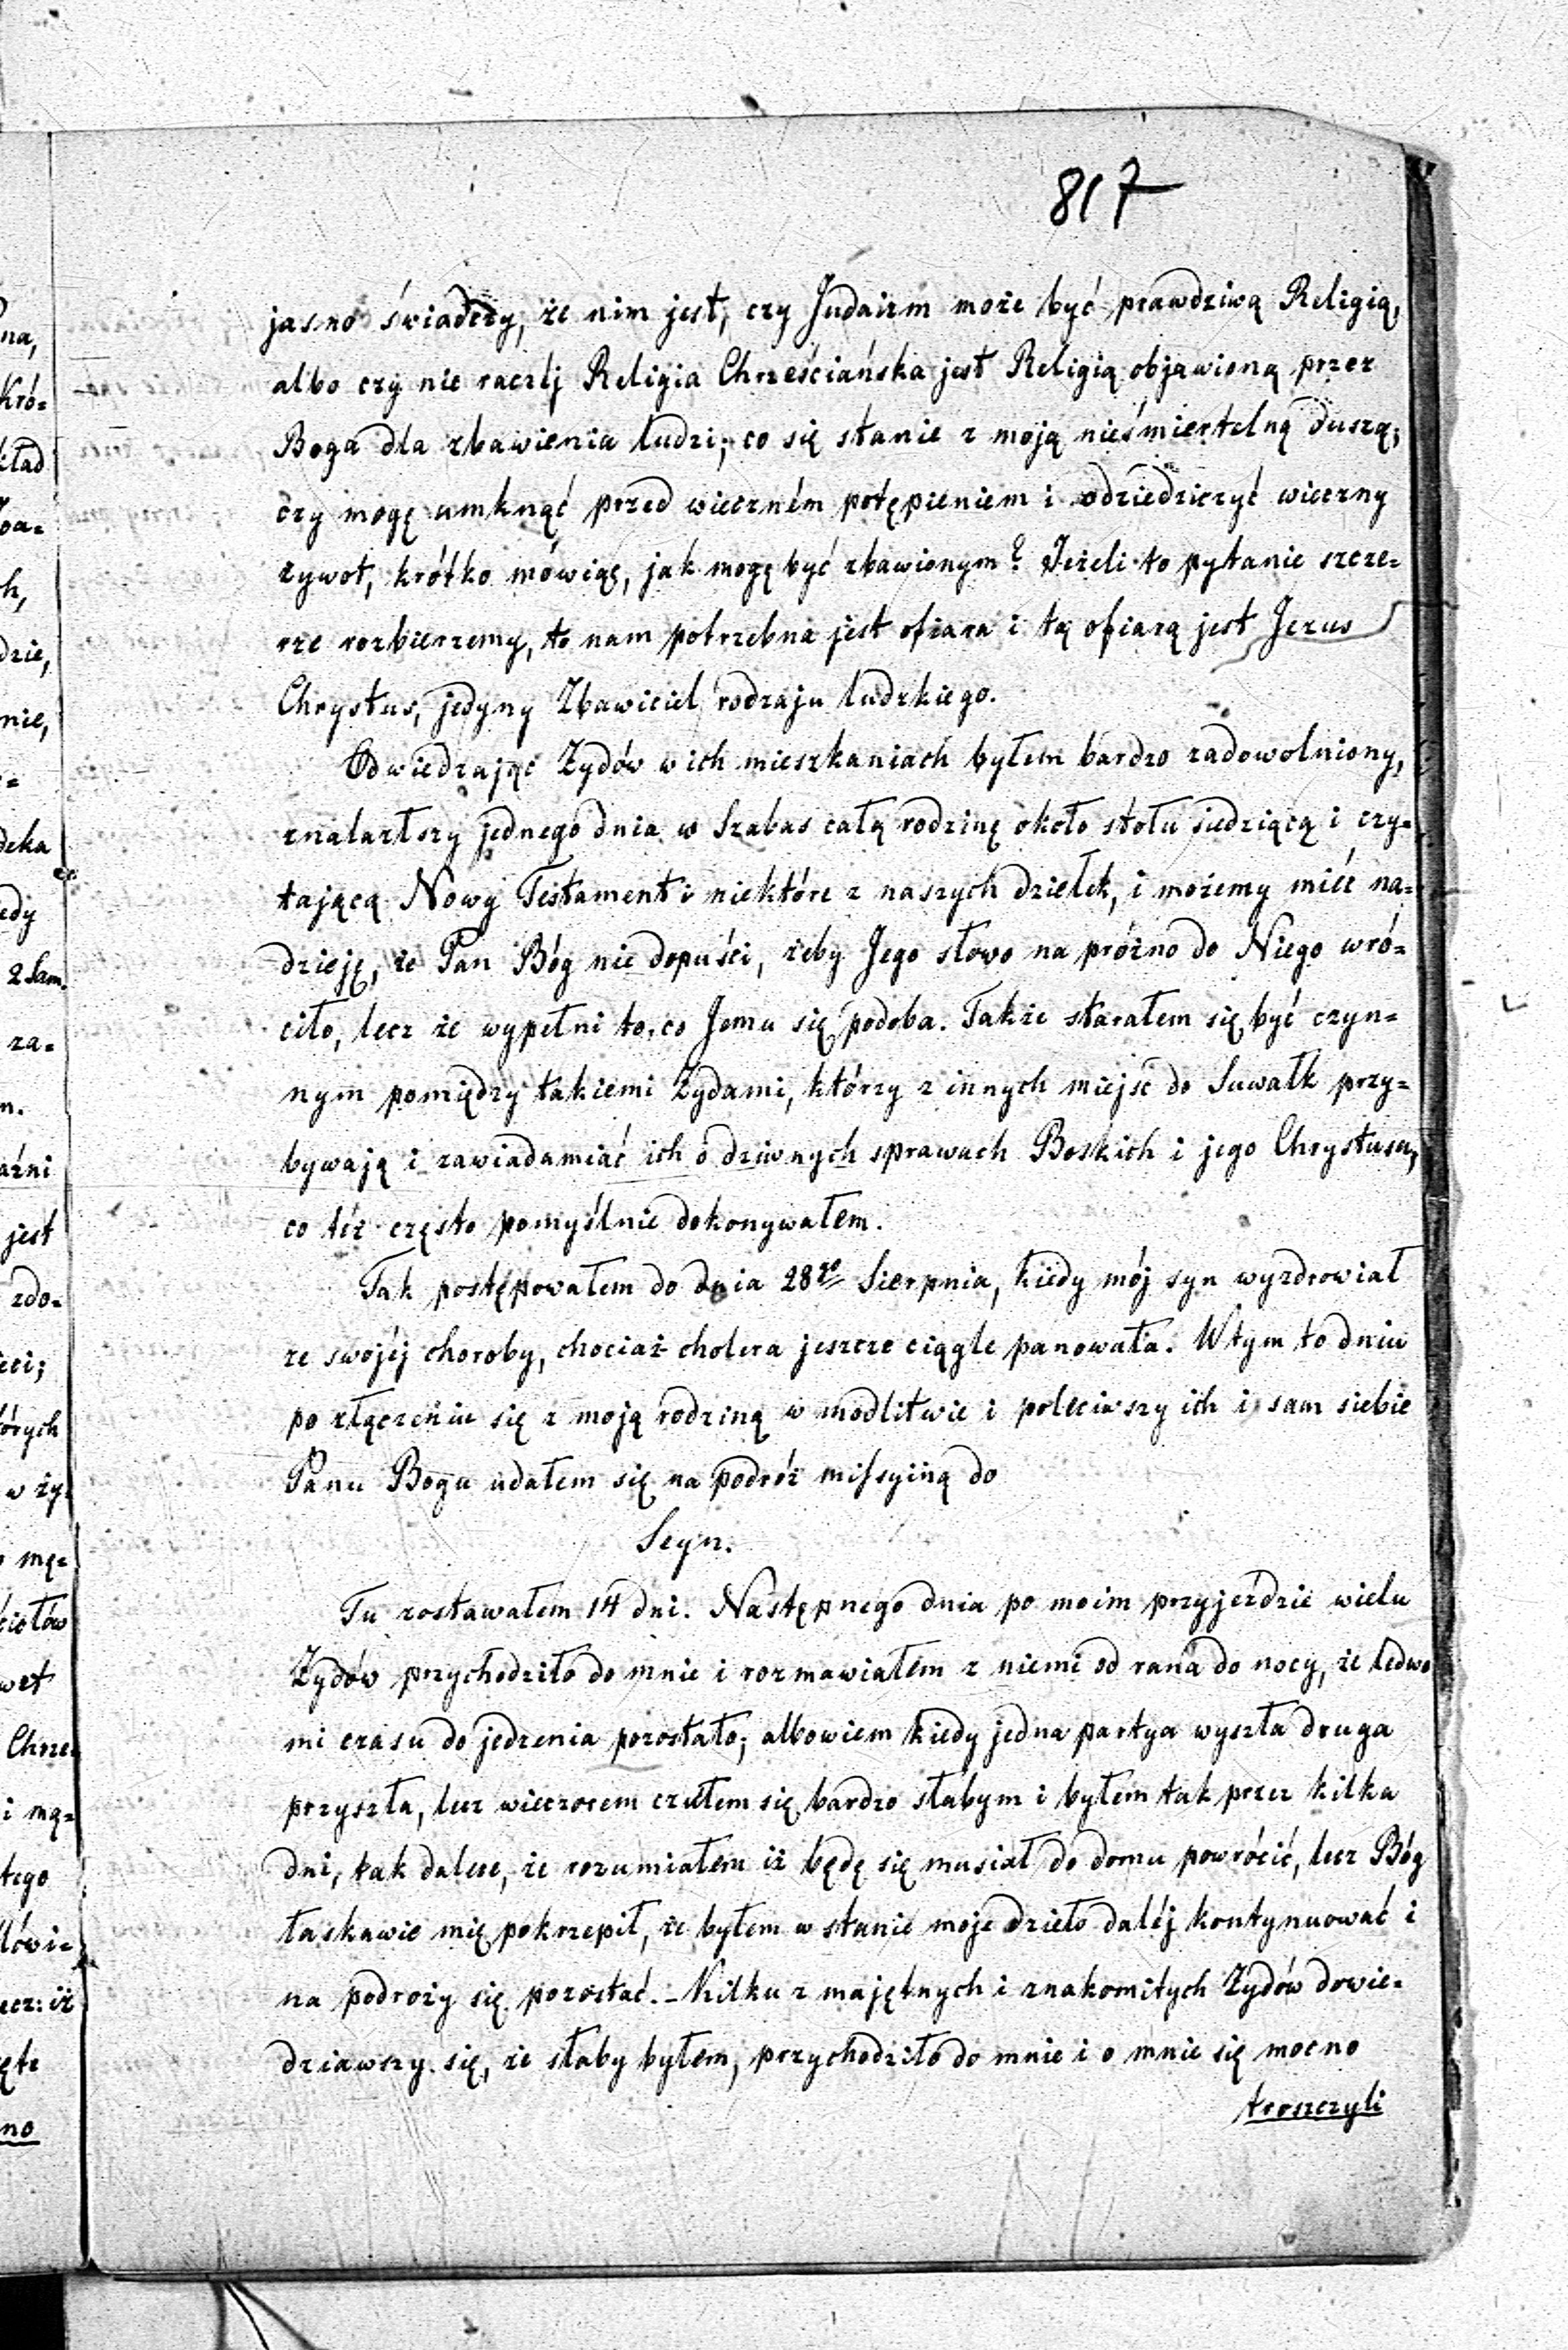 817
jasno świadczy, że nim jest, czy Judaizm może być prawdziwą Religią,
albo czy nie raczéj Religia Chrześciańska jest Religią objawioną przez
Boga dla zbawienia ludzi; co się stanie z moją nieśmiertelną duszą;
czy mogę umknąć przed wieczném potępieniem i odziedziczyć wieczny
żywot, krótko mówiąc, jak mogę być zbawionym? Jeżeli to pytanie szcze=
rze rozbierzemy, to nam potrzebna jest ofiara i tą ofiarą jest Jezus
Chrystus, jedyny Zbawiciel rodzaju ludzkiego.
Odwiedzając Żydów w ich mieszkaniach byłem bardzo zadowolniony,
znalazłszy jednego dnia w Szabas całą rodzinę około stołu siedzącą i czy=
tającą Nowy Testament i niektóre z naszych dziełek, i możemy mieć na=
dzieję, że Pan Bóg nie dopuści, żeby Jego słowo na próżno do Niego wró=
ciło, lecz że wypełni to, co Jemu się podoba. Także starałem się być czyn=
nym pomiędzy takiemi Żydami, którzy z innych miejsc do Suwałk przy=
bywają i zawiadamiać ich o dziwnych sprawach Boskich i jego Chrystusa,
co téż często pomyślnie dokonywałem.
Tak postępowałem do dnia 28go Sierpnia, kiedy mój syn wyzdrowiał
ze swojéj choroby, chociaż cholera jeszcze ciągle panowała. W tym to dniu
po złączeniu się z moją rodziną w modlitwie i poleciwszy ich i sam siebie
Panu Bogu udałem się na podróż missyiną do
Seyn.
Tu zostawałem 14 dni. Następnego dnia po moim przyjeździe wielu
Żydów przychodziło do mnie i rozmawiałem z niemi od rana do nocy, że ledwo
mi czasu do jedzenia pozostało; albowiem kiedy jedna partya wyszła druga
przyszła, lecz wieczorem czułem się bardzo słabym i byłem tak przez kilka
dni, tak dalece, że rozumiałem iż będę się musiał do domu powrócić, lecz Bóg
łaskawie mię pokrzepił, że byłem w stanie moje dzieło daléj kontynuować i
na podroży się pozostać. – Kilku z majętnych i znakomitych Żydów dowie=
dziawszy się, że słaby byłem, przychodziło do mnie i o mnie się mocno
troszczyli